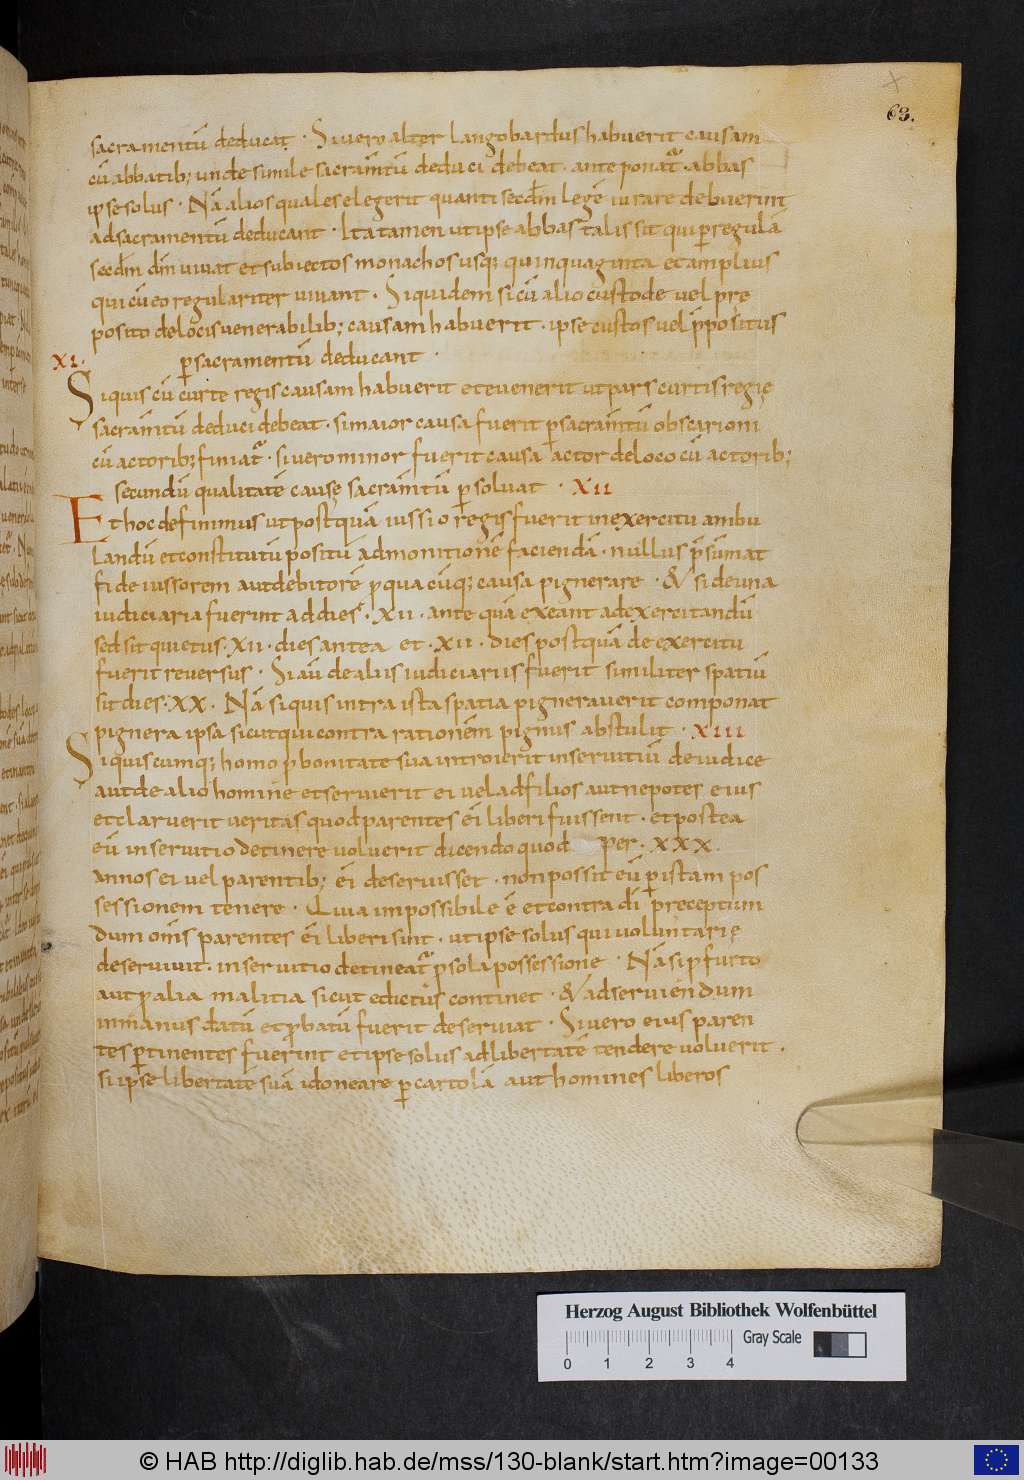 63.
sacramentū deducat · Si vero alter langobardus habuerit causam
cū abbatib; unde simile sacram̄tū deduci debeat · anteponat᷑ · abbas
ipse solus · Nā alios quales elegerit quanti secdm̄ legē iurare debuerint
ad sacramentū deducant · Ita tamen ut ipse abbas talis sit qui p̱ regulā
secdm̄ dm̄ vivat et subiectos monachos usq; quinquaginta et amplius
qui cū eo regulariter vivant · Siquidem si cū alio custode vel pre
posito de locis venerabilib; causam habuerit · ipse custos vel p̄positus
p̱ sacramentū deducant ·
XI·
Siquis cū curte regis causam habuerit et evenerit ut pars curtis regię
sacram̄tū deduci debeat · si maior causa fuerit p̱ sacram̄tū obscarioni
cū actorib; finiat᷑ · si vero minor fuerit causa actor de loco cū actorib;
secundū qualitatē causę sacram̄tū p̱solvat · XII
Et hoc definimus ut postquā iussio regis fuerit in exercitu ambu
landū et constitutū positū admonitionē faciendā · nullus p̄sumat
fideiussorem aut debitorē p̱ qua cūq; causa pignerare · & si de una
iudiciaria fuerint ad dies · XII · ante quā exeant ad exercitandū
sed sit quietus · XII · dies antea et · XII · dies postquā de exercitu
fuerit reversus · Si aū de aliis iudiciariis fuerit similiter spatiū
sit dies · XX · Nā siquis intra ista spatia pigneraverit componat
pignera ipsa sicut qui contra rationē̄ pignus abstulit · XIII
Siquiscumq; homo p̱ bonitate sua introierit in servitiū de iudice
aut de alio homine et servierit ei vel ad filios aut nepotes eius
et claruerit veritas quod parentes ei liberi fuissent · et postea
eū in servitio detinere voluerit dicendo quod per · XXX ·
annos ei vel parentib; ei deservisset · non possit eū p̱ istam pos
sessionem tenere · Quia impossibile ē et contra dī preceptum
dum om̄s parentes ei liberi sint · ut ipse solus qui voluntarię
deservivit · in servitio detineat᷑ p̱ sola possessione · Nā si p̱ furto
aut p̱ alia malitia sicut edictus continet · & ad serviendum
in manus datū et p̱batū fuerit deserviat · Si vero eius paren
tes p̱tinentes fuerint et ipse solus ad libertatē tendere voluerit ·
si ipse libertatē suā idoneare p̱ cartolā aut homines liberos
Herzog August Bibliothek Wolfenbüttel
Gray Scale
0 1 2 3 4
© HAB http://diglib.hab.de/mss/130-blank/start.htm?image=00133